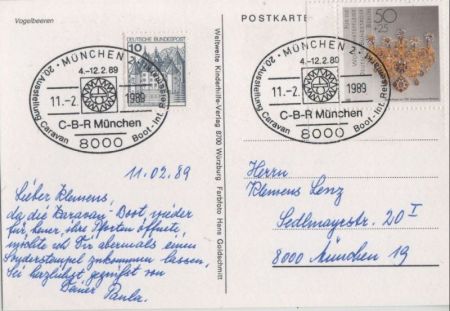 Vogelbeeren
POSTKARTE
DEUTSCHE BUNDESPOST
10
50
+25
MÜNCHEN 2
4.-12.2.89
11.-2. 1989
C-B-R München
8000
20. Ausstellung Caravan Boot-Int. Reisemarkt
MÜNCHEN 2
4.-12.2.89
11.-2. 1989
C-B-R München
8000
20. Ausstellung Caravan Boot-Int. Reisemarkt
Weltweite Kinderhilfe-Verlag 8700 Würzburg Farbfoto Hans Goldschmitt
11.02.89
Lieber Klemens,
da die Caravan-Boot wieder
für heuer ihre Pforten öffnete,
möchte ich Dir abermals einen
Sonderstempel zukommen lassen,
Sei herzlichst gegrüßt von
Deiner Paula.
Herrn
Klemens Lenz
Sedlmayrstr. 20 I
8000 München 19